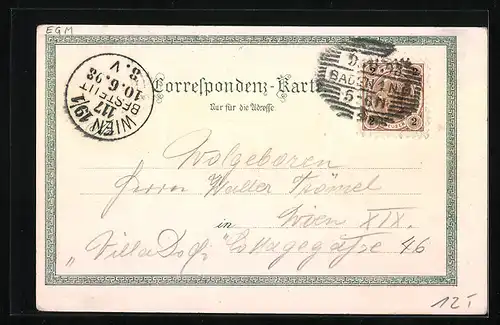 EGM
WIEN 19/1
117
BESTELLT
10.6.98
8.V
BADEN 1 N.Ö.
5-6 N
2
Correspondenz-Karte
Nur für die Adresse.
Wolgeboren
Herrn Walter
in
Wien XIX.
"Villa Cottagegasse 46
12,-